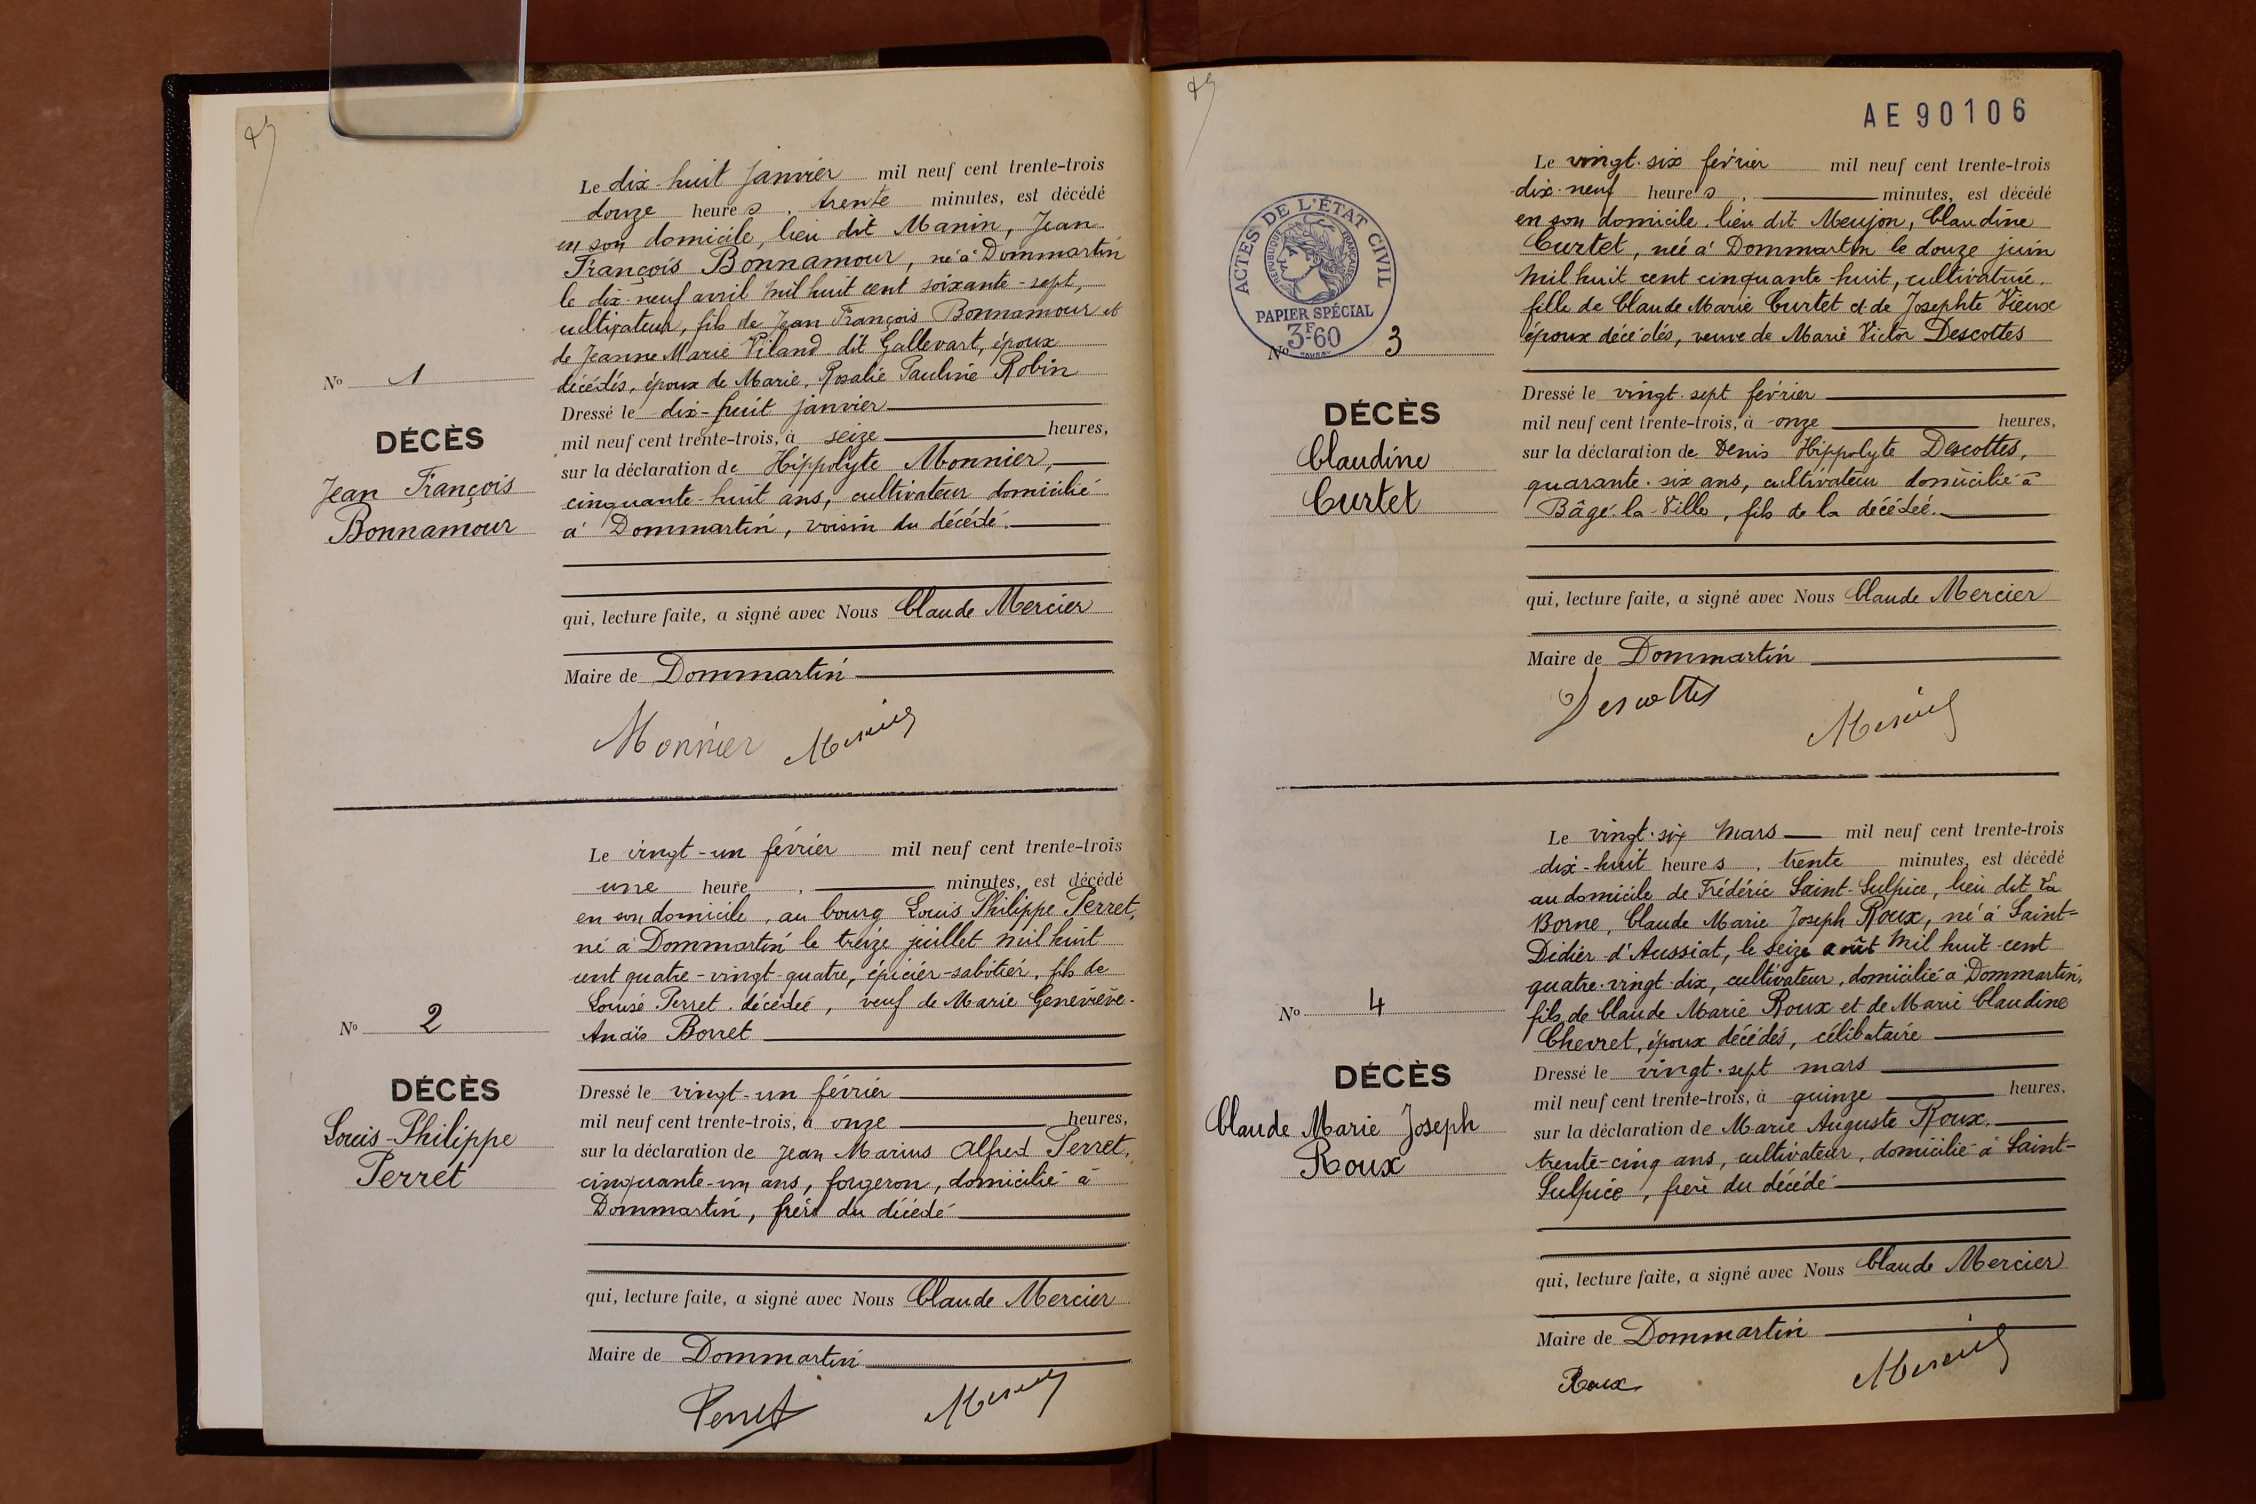 Le dix-huit janvier mil neuf cent trente-trois
douze heures, trente minutes, est décédé
en son domicile, lieu dit Manin, Jean
François Bonnamour, né à Dommartin
le dix-neuf avril mil huit cent soixante-sept,
cultivateur, fils de Jean François Bonnamour et
de Jeanne Marie Viland dit Gallevart, époux
décédés, époux de Marie, Rosalie Pauline Robin
No 1
DÉCÈS
Jean François
Bonnamour
Dressé le dix-huit janvier
mil neuf cent trente-trois, à seize heures,
sur la déclaration de Hippolyte Monnier,
cinquante-huit ans, cultivateur domicilié
à Dommartin, voisin du décédé.
qui, lecture faite, a signé avec Nous Claude Mercier
Maire de Dommartin
Monnier Mercier
Le vingt-un février mil neuf cent trente-trois
une heure, minutes, est décédé
en son domicile, au bourg Louis Philippe Perret,
né à Dommartin le treize juillet mil huit
cent quatre-vingt-quatre, épicier-sabotier, fils de
Louise Perret décédée, veuf de Marie Geneviève-
Anaïs Borret
No 2
DÉCÈS
Louis-Philippe
Perret
Dressé le vingt-un février
mil neuf cent trente-trois, à onze heures,
sur la déclaration de Jean Marius Alfred Perret,
cinquante-un ans, forgeron, domicilié à
Dommartin, frère du décédé
qui, lecture faite, a signé avec Nous Claude Mercier
Maire de Dommartin
Perret Mercier
AE90106
Le vingt-six février mil neuf cent trente-trois
dix-neuf heures, minutes, est décédé
en son domicile, lieu dit Meujon, Claudine
Curtet, née à Dommartin le douze juin
mil huit cent cinquante-huit, cultivatrice,
fille de Claude Marie Curtet et de Josephte Vieux
époux décédés, veuve de Marie Victor Descottes
ACTES DE L'ÉTAT CIVIL
RÉPUBLIQUE FRANÇAISE
PAPIER SPÉCIAL
3F60
No 3
DÉCÈS
Claudine
Curtet
Dressé le vingt-sept février
mil neuf cent trente-trois, à onze heures,
sur la déclaration de Denis Hippolyte Descottes,
quarante-six ans, cultivateur domicilié à
Bâgé-la-Ville, fils de la décédée.
qui, lecture faite, a signé avec Nous Claude Mercier
Maire de Dommartin
Descottes
Mercier
Le vingt-six mars mil neuf cent trente-trois
dix-huit heures, trente minutes, est décédé
au domicile de Frédéric Saint-Sulpice, lieu dit La
Borne, Claude Marie Joseph Roux, né à Saint-
Didier d'Aussiat, le seize août mil huit cent
quatre-vingt-dix, cultivateur, domicilié à Dommartin,
fils de Claude Marie Roux et de Marie Claudine
Chevret, époux décédés, célibataire
No 4
DÉCÈS
Claude Marie Joseph
Roux
Dressé le vingt-sept mars
mil neuf cent trente-trois, à quinze heures,
sur la déclaration de Marie Auguste Roux,
trente-cinq ans, cultivateur, domicilié à Saint-
Sulpice, frère du décédé
qui, lecture faite, a signé avec Nous Claude Mercier
Maire de Dommartin
Roux Mercier